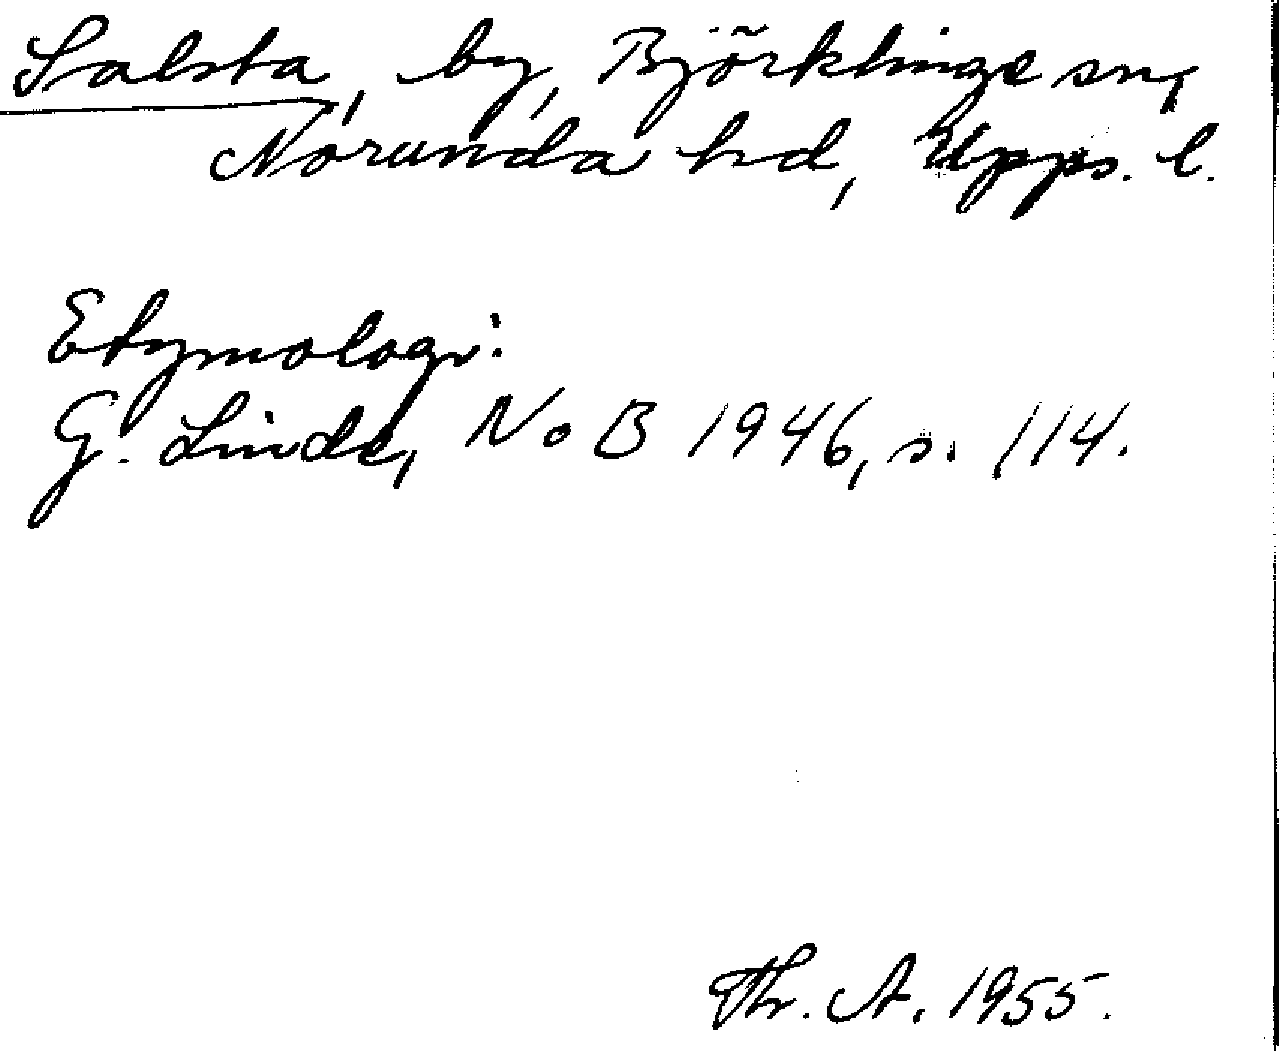 Salsta, by, Björklinge sn,
Norunda hd, Upps. l.
Etymologi:
G. Linde, NoB 1946, s. 114.
Th. A. 1955.